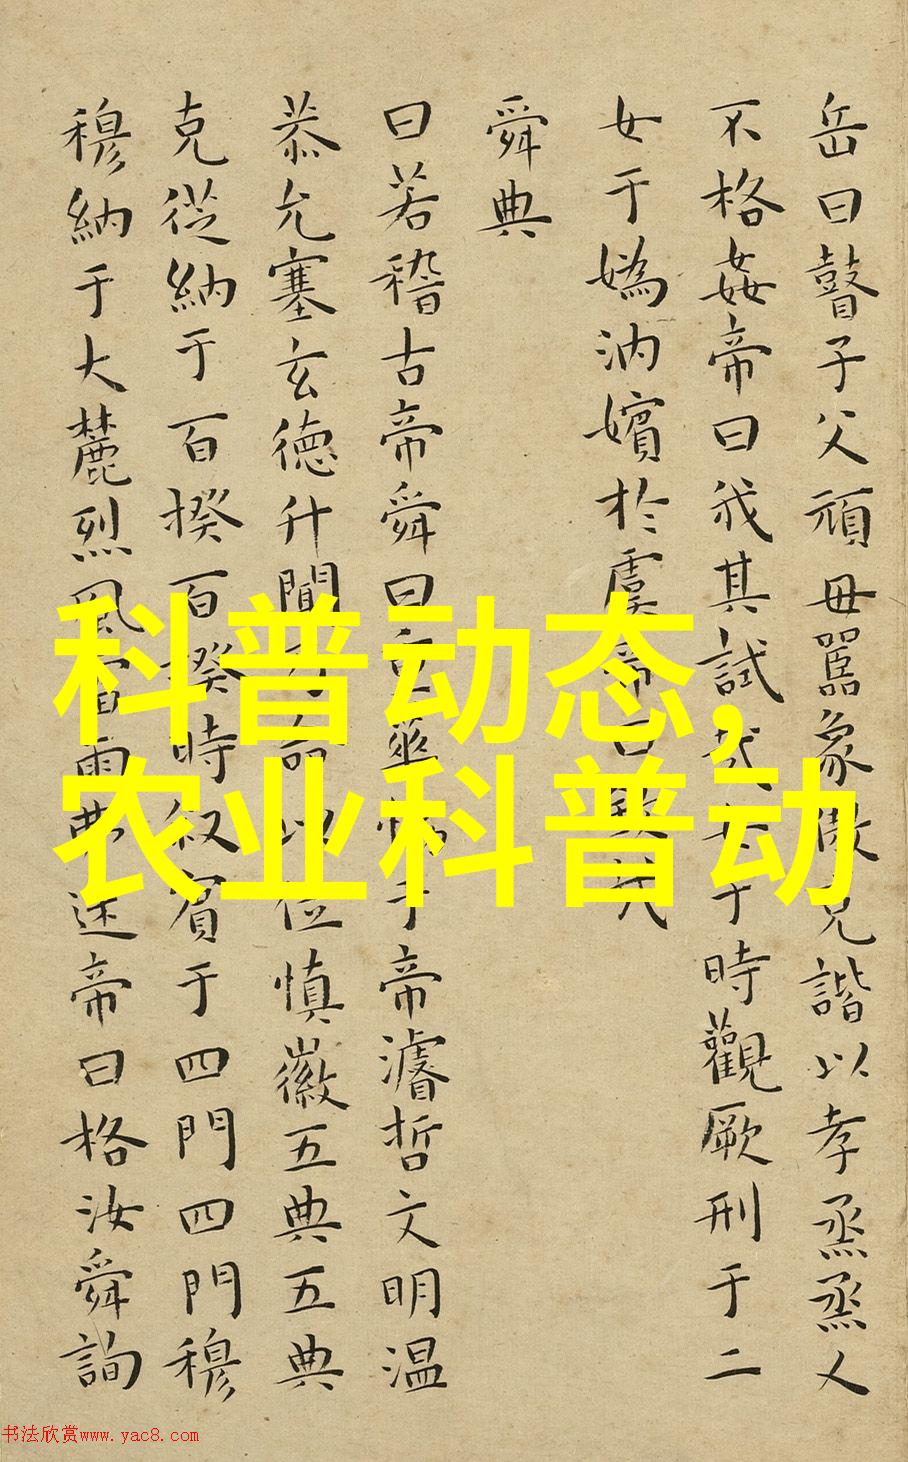 岳曰瞽子父頑毋嚚象傲克諧以孝烝烝乂
不格姦帝曰我其試哉女于時觀厥刑于二
女于嬀汭嬪於虞帝曰欽哉
舜典
曰若稽古帝舜曰重華協于帝濬哲文明温
恭允塞玄徳升聞乃命以位慎徽五典五典
克從納于百揆百揆時叙賓于四門四門穆
穆納于大麓烈風雷雨弗迷帝曰格汝舜詢
科普动态,
农业科普动
书法欣赏www.yac8.com